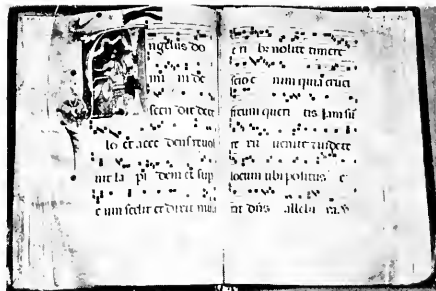 Angelus do
mi ni de
scendit de ce
lo et acce dens revol
vit la pi dem et sup
eum sedit et dixit muli
eri b nolite timere
scio e nim quia cruci
fixum queri tis iam sur
re xit venite et videte
locum ubi positus e
rat dns allelu ia. V